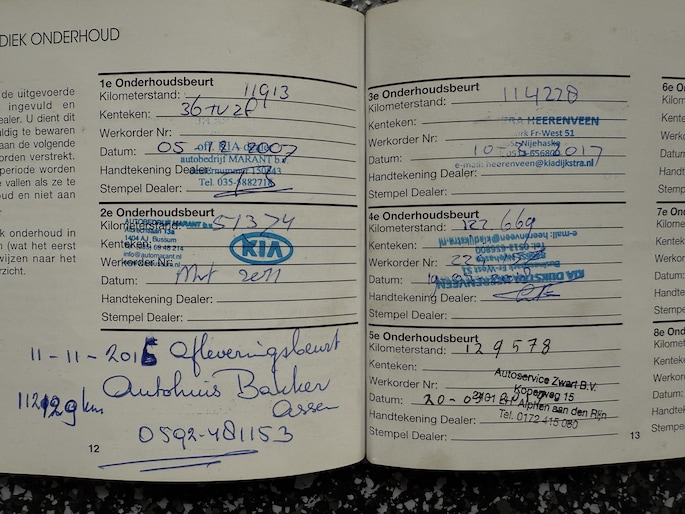 DIEK ONDERHOUD
de uitgevoerde
ingevuld en
ealer. U dient dit
uldig te bewaren
aan de volgende
orden verstrekt.
periode worden
vallen als ze te
oud en niet aan
onderhoud in
(wat het eerst
wijzen naar het
rzicht.
1e Onderhoudsbeurt
Kilometerstand: 11913
Kenteken: 36 TV ZF
Werkorder Nr:
Datum: 05-12-2007
Handtekening Dealer:
Stempel Dealer:
off. KIA dealer
autobedrijf MARANT b.v.
Tel. 035-6882718
2e Onderhoudsbeurt
Kilometerstand: 51374
Kenteken:
Werkorder Nr:
Datum: Mrt 2011
Handtekening Dealer:
Stempel Dealer:
AUTOBEDRIJF MARANT b.v.
1404 AJ Bussum
KIA
11-11-2015 Afleveringsbeurt
Autohuis Bakker
Assen
129 km
0592-481153
12
3e Onderhoudsbeurt
Kilometerstand: 114220
Kenteken:
Werkorder Nr:
Datum:
Handtekening Dealer:
Stempel Dealer:
HEERENVEEN
Fr-West 51
Nijehaske
e-mail: heerenveen@kiadijkstra.nl
4e Onderhoudsbeurt
Kilometerstand: 122.669
Kenteken:
Werkorder Nr:
Datum:
Handtekening Dealer:
Stempel Dealer:
KIA DIJKSTRA HEERENVEEN
5e Onderhoudsbeurt
Kilometerstand: 129578
Kenteken:
Werkorder Nr:
Datum:
Handtekening Dealer:
Stempel Dealer:
Autoservice Zwart B.V.
Koperweg 15
Alphen aan den Rijn
Tel. 0172 415 080
13
6e O
Kilom
Kente
Werk
Datu
Hand
Stem
7e O
Kilom
Kent
Wer
Datu
Han
Ste
8e
Kil
Ke
W
Da
H
S